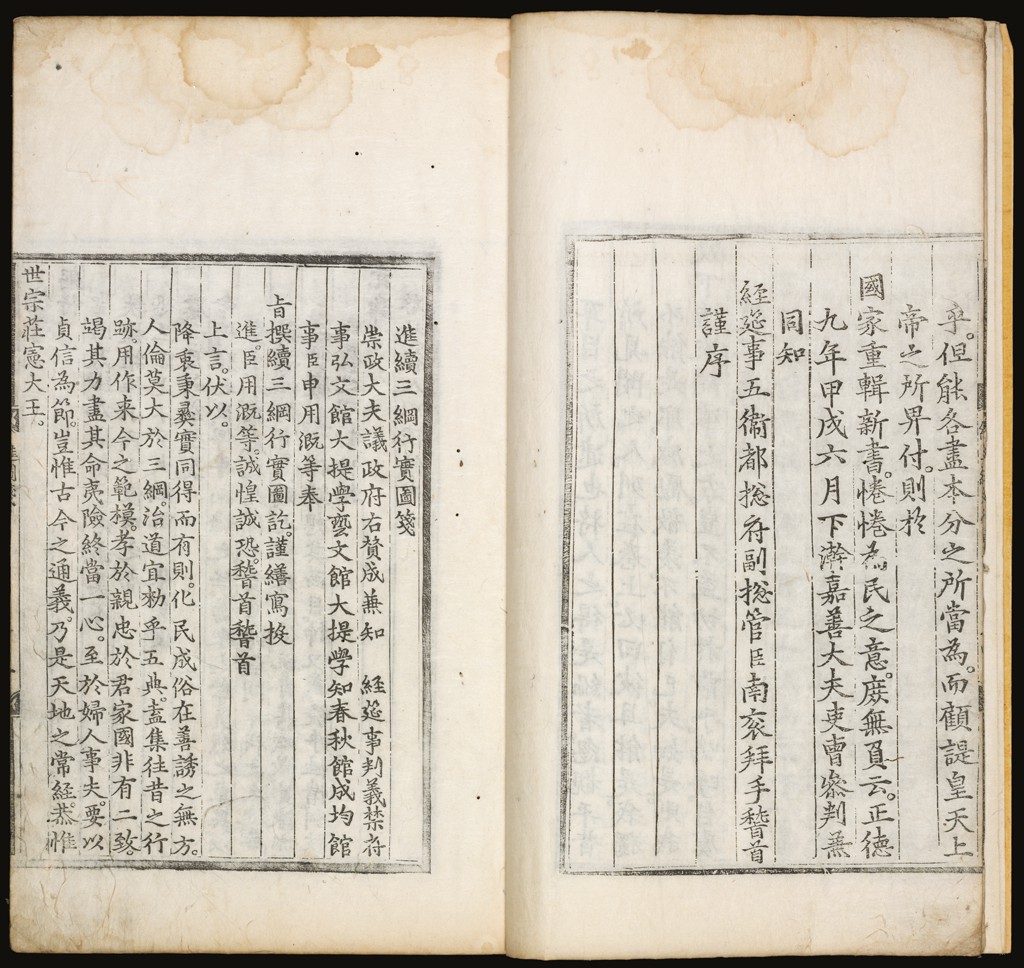 乎。但能各盡本分之所當為。而顧諟皇天上
帝之所畀付。則於
國家重輯新書。惓惓為民之意。庶無負云。正德
九年甲戌六月下澣嘉善大夫吏曹參判兼
同知
經筵事五衛都摠府副摠管臣南袞拜手稽首
謹序
進續三綱行實圖箋
崇政大夫議政府右贊成兼知 經筵事判義禁府
事弘文館大提學藝文館大提學知春秋館成均館
事臣申用漑等奉
旨撰續三綱行實圖訖。謹繕寫投
進。臣用漑等。誠惶誠恐。稽首稽首
上言。伏以。
降衷秉彝實同得而有則。化民成俗在善誘之無方。
人倫莫大於三綱治道宜勑乎五典。盖集往昔之行
跡。用作来今之範模。孝於親忠於君家國非有二致。
竭其力盡其命夷險終當一心。至於婦人事夫。要以
貞信為節。豈惟古今之通義。乃是天地之常經。恭惟
世宗莊憲大王。